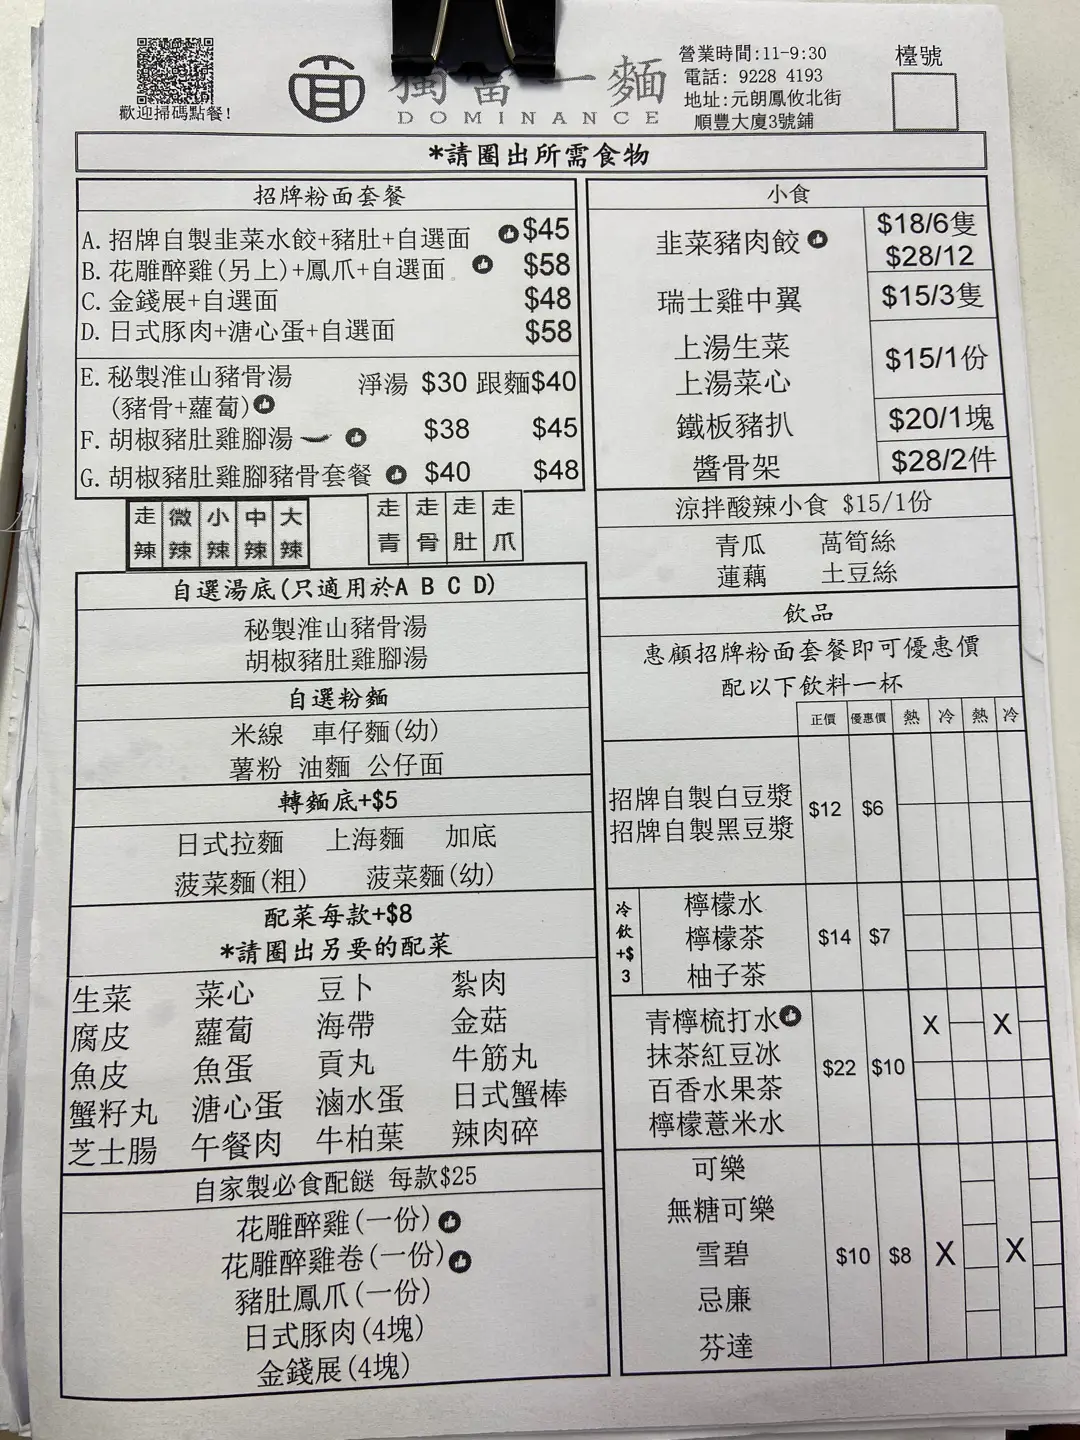 歡迎掃碼點餐!
獨當一麵
DOMINANCE
營業時間:11-9:30
電話: 9228 4193
地址:元朗鳳攸北街
順豐大廈3號鋪
檯號
*請圈出所需食物
招牌粉面套餐
A.招牌自製韭菜水餃+豬肚+自選面 $45
B.花雕醉雞(另上)+鳳爪+自選面 $58
C.金錢展+自選面 $48
D.日式豚肉+溏心蛋+自選面 $58
E.秘製淮山豬骨湯 淨湯 $30 跟麵$40
(豬骨+蘿蔔)
F.胡椒豬肚雞腳湯 $38 $45
G.胡椒豬肚雞腳豬骨套餐 $40 $48
走辣 微辣 小辣 中辣 大辣
走青 走骨 走肚 走爪
自選湯底(只適用於A B C D)
秘製淮山豬骨湯
胡椒豬肚雞腳湯
自選粉麵
米線 車仔麵(幼)
薯粉 油麵 公仔面
轉麵底+$5
日式拉麵 上海麵 加底
菠菜麵(粗) 菠菜麵(幼)
配菜每款+$8
*請圈出另要的配菜
生菜 菜心 豆卜 紮肉
腐皮 蘿蔔 海帶 金菇
魚皮 魚蛋 貢丸 牛筋丸
蟹籽丸 溏心蛋 滷水蛋 日式蟹棒
芝士腸 午餐肉 牛柏葉 辣肉碎
自家製必食配餸 每款$25
花雕醉雞(一份)
花雕醉雞卷(一份)
豬肚鳳爪(一份)
日式豚肉(4塊)
金錢展(4塊)
小食
韭菜豬肉餃 $18/6隻
$28/12
瑞士雞中翼 $15/3隻
上湯生菜
上湯菜心 $15/1份
鐵板豬扒 $20/1塊
醬骨架 $28/2件
涼拌酸辣小食 $15/1份
青瓜 萵筍絲
蓮藕 土豆絲
飲品
惠顧招牌粉面套餐即可優惠價
配以下飲料一杯
正價 優惠價 熱 冷 熱 冷
招牌自製白豆漿
招牌自製黑豆漿 $12 $6
冷飲+$3
檸檬水
檸檬茶 $14 $7
柚子茶
青檸梳打水 X X
抹茶紅豆冰 $22 $10
百香水果茶
檸檬薏米水
可樂
無糖可樂
雪碧 $10 $8 X X
忌廉
芬達